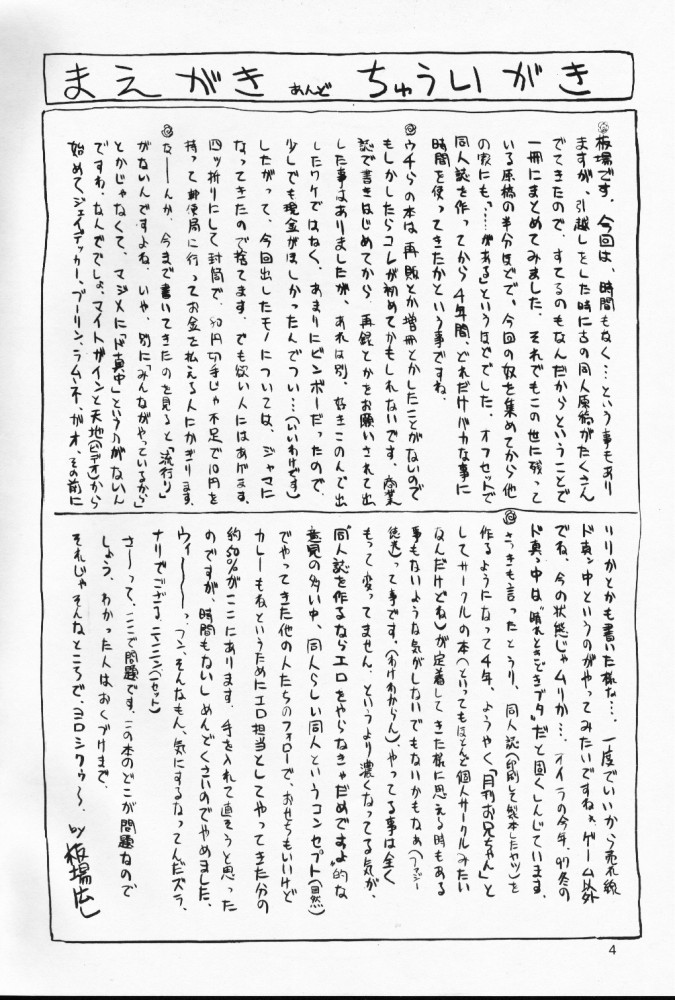 まえがき あんど ちゅういがき
◎板場です。今回は、時間もなく…という事もあり
ますが、引越しをした時に古の同人原稿がたくさん
でてきたので、すてるのもなんだからということで
一冊にまとめてみました。それでもこの世に残って
いる原稿の半分ほどで。今回の奴を集めてから他
の家にも、“……がある”というほどでした。オフセットで
同人誌を作ってから4年間、どれだけバカな事に
時間を使ってきたかという事ですね。
◎ウチらの本は、再販とか増冊とかしたことがないので
もしかしたらコレが初めてかもしれないです。商業
誌で書きはじめてから、再録とかをお願いされて出
した事はありましたが、あれは別。好きこのんで出
したワケではなく、あまりにビンボーだったので、
少しでも現金がほしかったんでつい…(いいわけです)
したがって、今回出したモノについては、ジャマに
なってきたので捨てます。でも欲い人にはあげます。
四ッ折りにして封筒で、80円切手じゃ不足で10円を
持って郵便局に行ってお金を払える人にかぎります。
◎な――んか、今まで書いてきたのを見ると「流行り」
がないんですよね。いや、別に「みんながやっているから」
とかじゃなくて、マジメに「ド真中」というのがないん
ですわ。なんででしょ。マイトガインと天地(ビデオ)から
始めて、ジェイデッカー、プーリン、ラムネ、ガオ、その前に
リリカとかも書いた様な…。一度でいいから売れ線
ド真ン中というのがやってみたいですね。ゲーム以外
でね、今の状態じゃムリか…。オイラの今年、97冬の
ド真っ中は“晴れときどきブタ”だと固くしんじています。
◎さっきも言ったとうり、同人誌(印刷して製本したヤツ)を
作るようになって4年、ようやく「月刊お兄ちゃん」と
してサークルの本(といってもほとんど個人サークルみたい
なんだけどね)が定着してきた様に思える時もある
事もないような気がしないでもないかもなぁ(ファジー
って事です。(わけわからん)。やってる事は全く
もって変ってません。というより濃くなってる気が。
“同人誌を作るならエロをやらなきゃだめですよ”的な
意見の多い中、同人らしい同人というコンセプト(自然)
でやってきた他の人たちのフォローで、おせちもいいけど
カレーもねというためにエロ担当としてやってきた分の
約50%がここにあります。手を入れて直そうと思った
のですが、時間もないしめんどくさいのでやめました。
ウィ―――っ、フン、そんなもん、気にするなってんだズラ、
ナリでござる、ニンニン(1セット)
さ―って、ここで問題です。この本のどこが問題なので
しょう。わかった人はおくづけまで。
それじゃそんなところで、ヨロシクゥ～。
by 板場広し
4